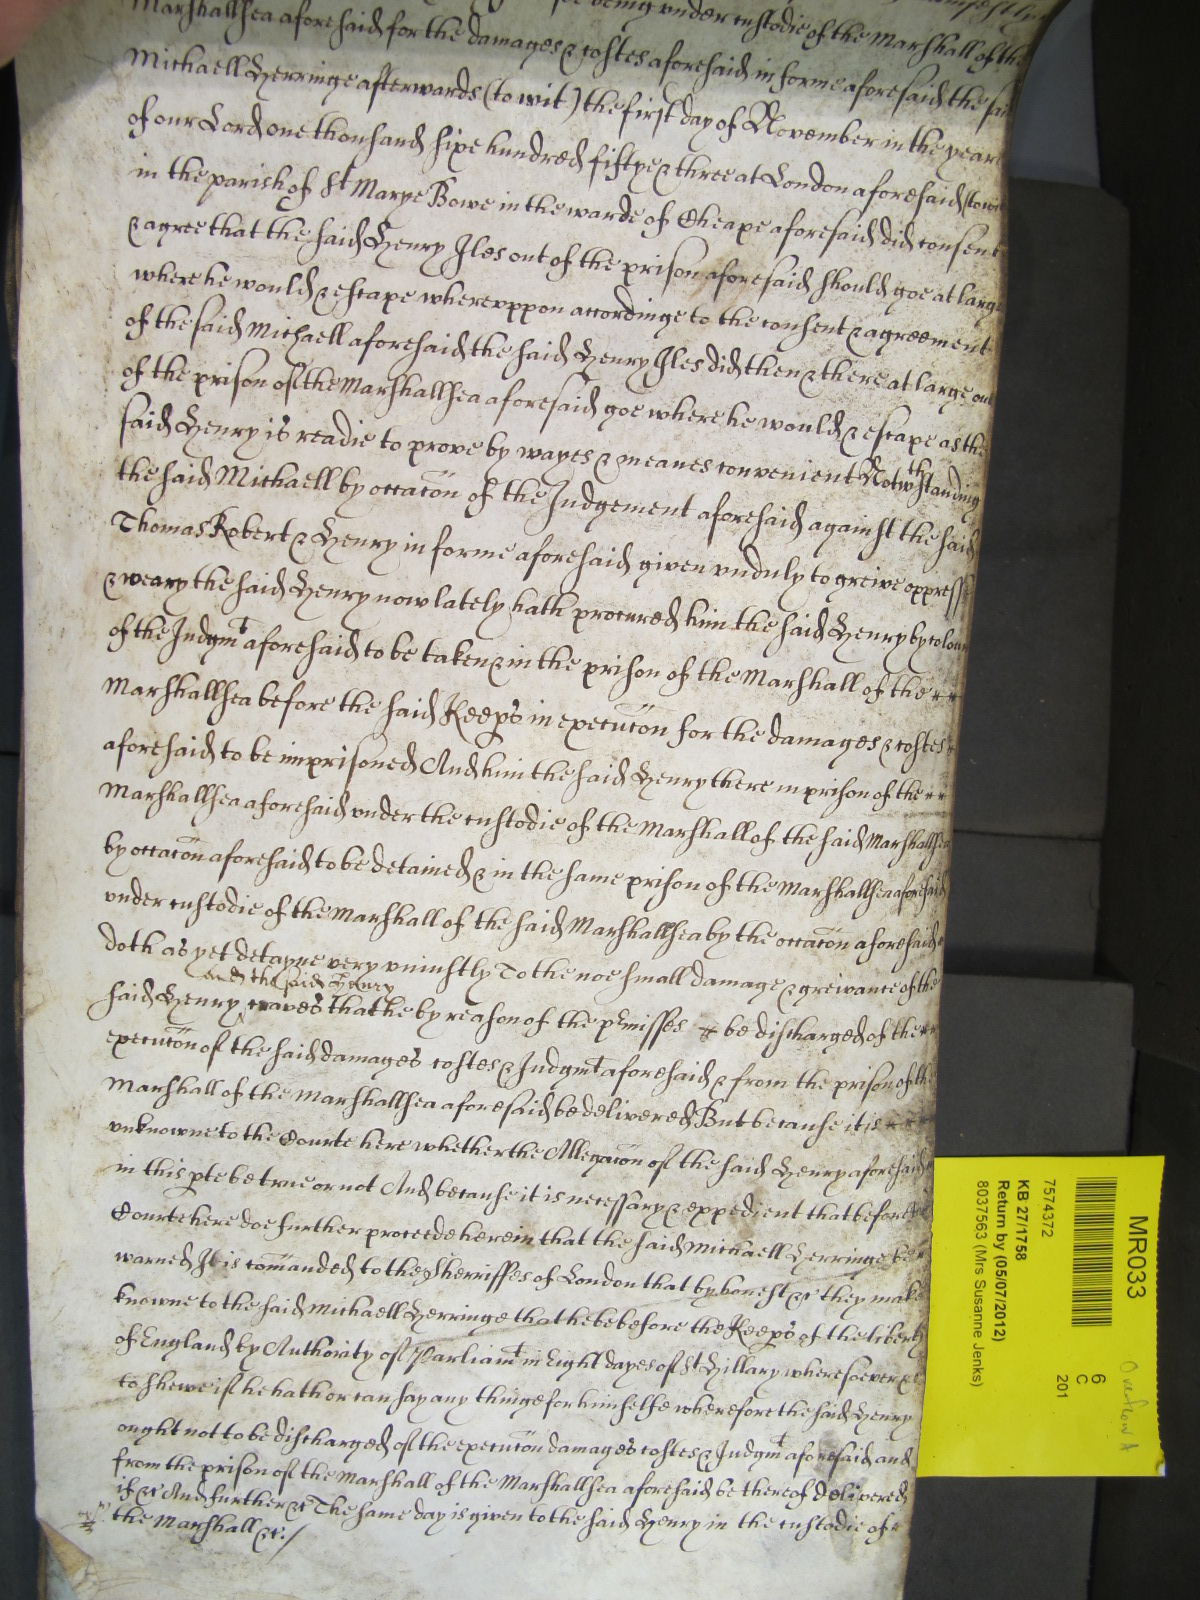 being under custodie of the Marshall of the
Marshallsea aforesaid for the damages & costes aforesaid in forme aforesaid the said
Michaell Herringe afterwards (to wit) the first day of November in the yeare
of our Lord one thousand sixe hundred fiftye & three at London aforesaid (to wit
in the parish of St Marye Bowe in the warde of Cheape aforesaid did consent
& agree that the said Henry Iles out of the prison aforesaid should goe at large
where he would & escape whereuppon accordinge to the consent & agreement
of the said Michaell aforesaid the said Henry Iles did then & there at large out
of the prison of the Marshallsea aforesaid goe where he would & escape as the
said Henry is readie to prove by wayes & meanes convenient Notwthstanding
the said Michaell by occacon of the Judgement aforesaid against the said
Thomas Robert & Henry in forme aforesaid given unduly to greive oppresse
& weary the said Henry now lately hath procured him the said Henry by colour
of the Judgmt aforesaid to be taken & in the prison of the Marshall of the
Marshallsea before the said Keeps in execucon for the damages & costes
aforesaid to be imprisoned And him the said Henry there in prison of the
Marshallsea aforesaid under the custodie of the Marshall of the said Marshallsea
by occacon aforesaid to be detained & in the same prison of the Marshallsea aforesaid
under custodie of the Marshall of the said Marshallsea by the occacon aforesaid
doth as yet detayne very uniustly To the noe small damage & greivance of the
and the said Henry
said Henry craves that he by reason of the pmisses be discharged of the
execucon of the said damages costes & Judgmt aforesaid & from the prison of the
Marshall of the Marshallsea aforesaid be delivered But because it is
unknowne to the Courte here whether the Allegacon of the said Henry aforesaid
in this pte be true or not And because it is necessary & expedient that before the
Courte here doe further proceede herein that the said Michaell Herringe be
warned It is comanded to the Sherriffes of London that by honest &c they make
knowne to the said Michaell Herringe that he be before the Keeps of the liberty
of England by Authority of Parliamt in Eight dayes of St Hillary wheresoever &c
to shewe if he hath or can say any thinge for himselfe wherefore the said Henry
ought not to be discharged of the execucon damages costes & Judgmt aforesaid and
from the prison of the Marshall of the Marshallsea aforesaid be thereof delivered
if &c And further &c The same day is given to the said Henry in the custodie of
the Marshall &c./
MR033
7574372
KB 27/1758
Return by (05/07/2012)
8037563 (Mrs Susanne Jenks)
6
C
201
Overflow A